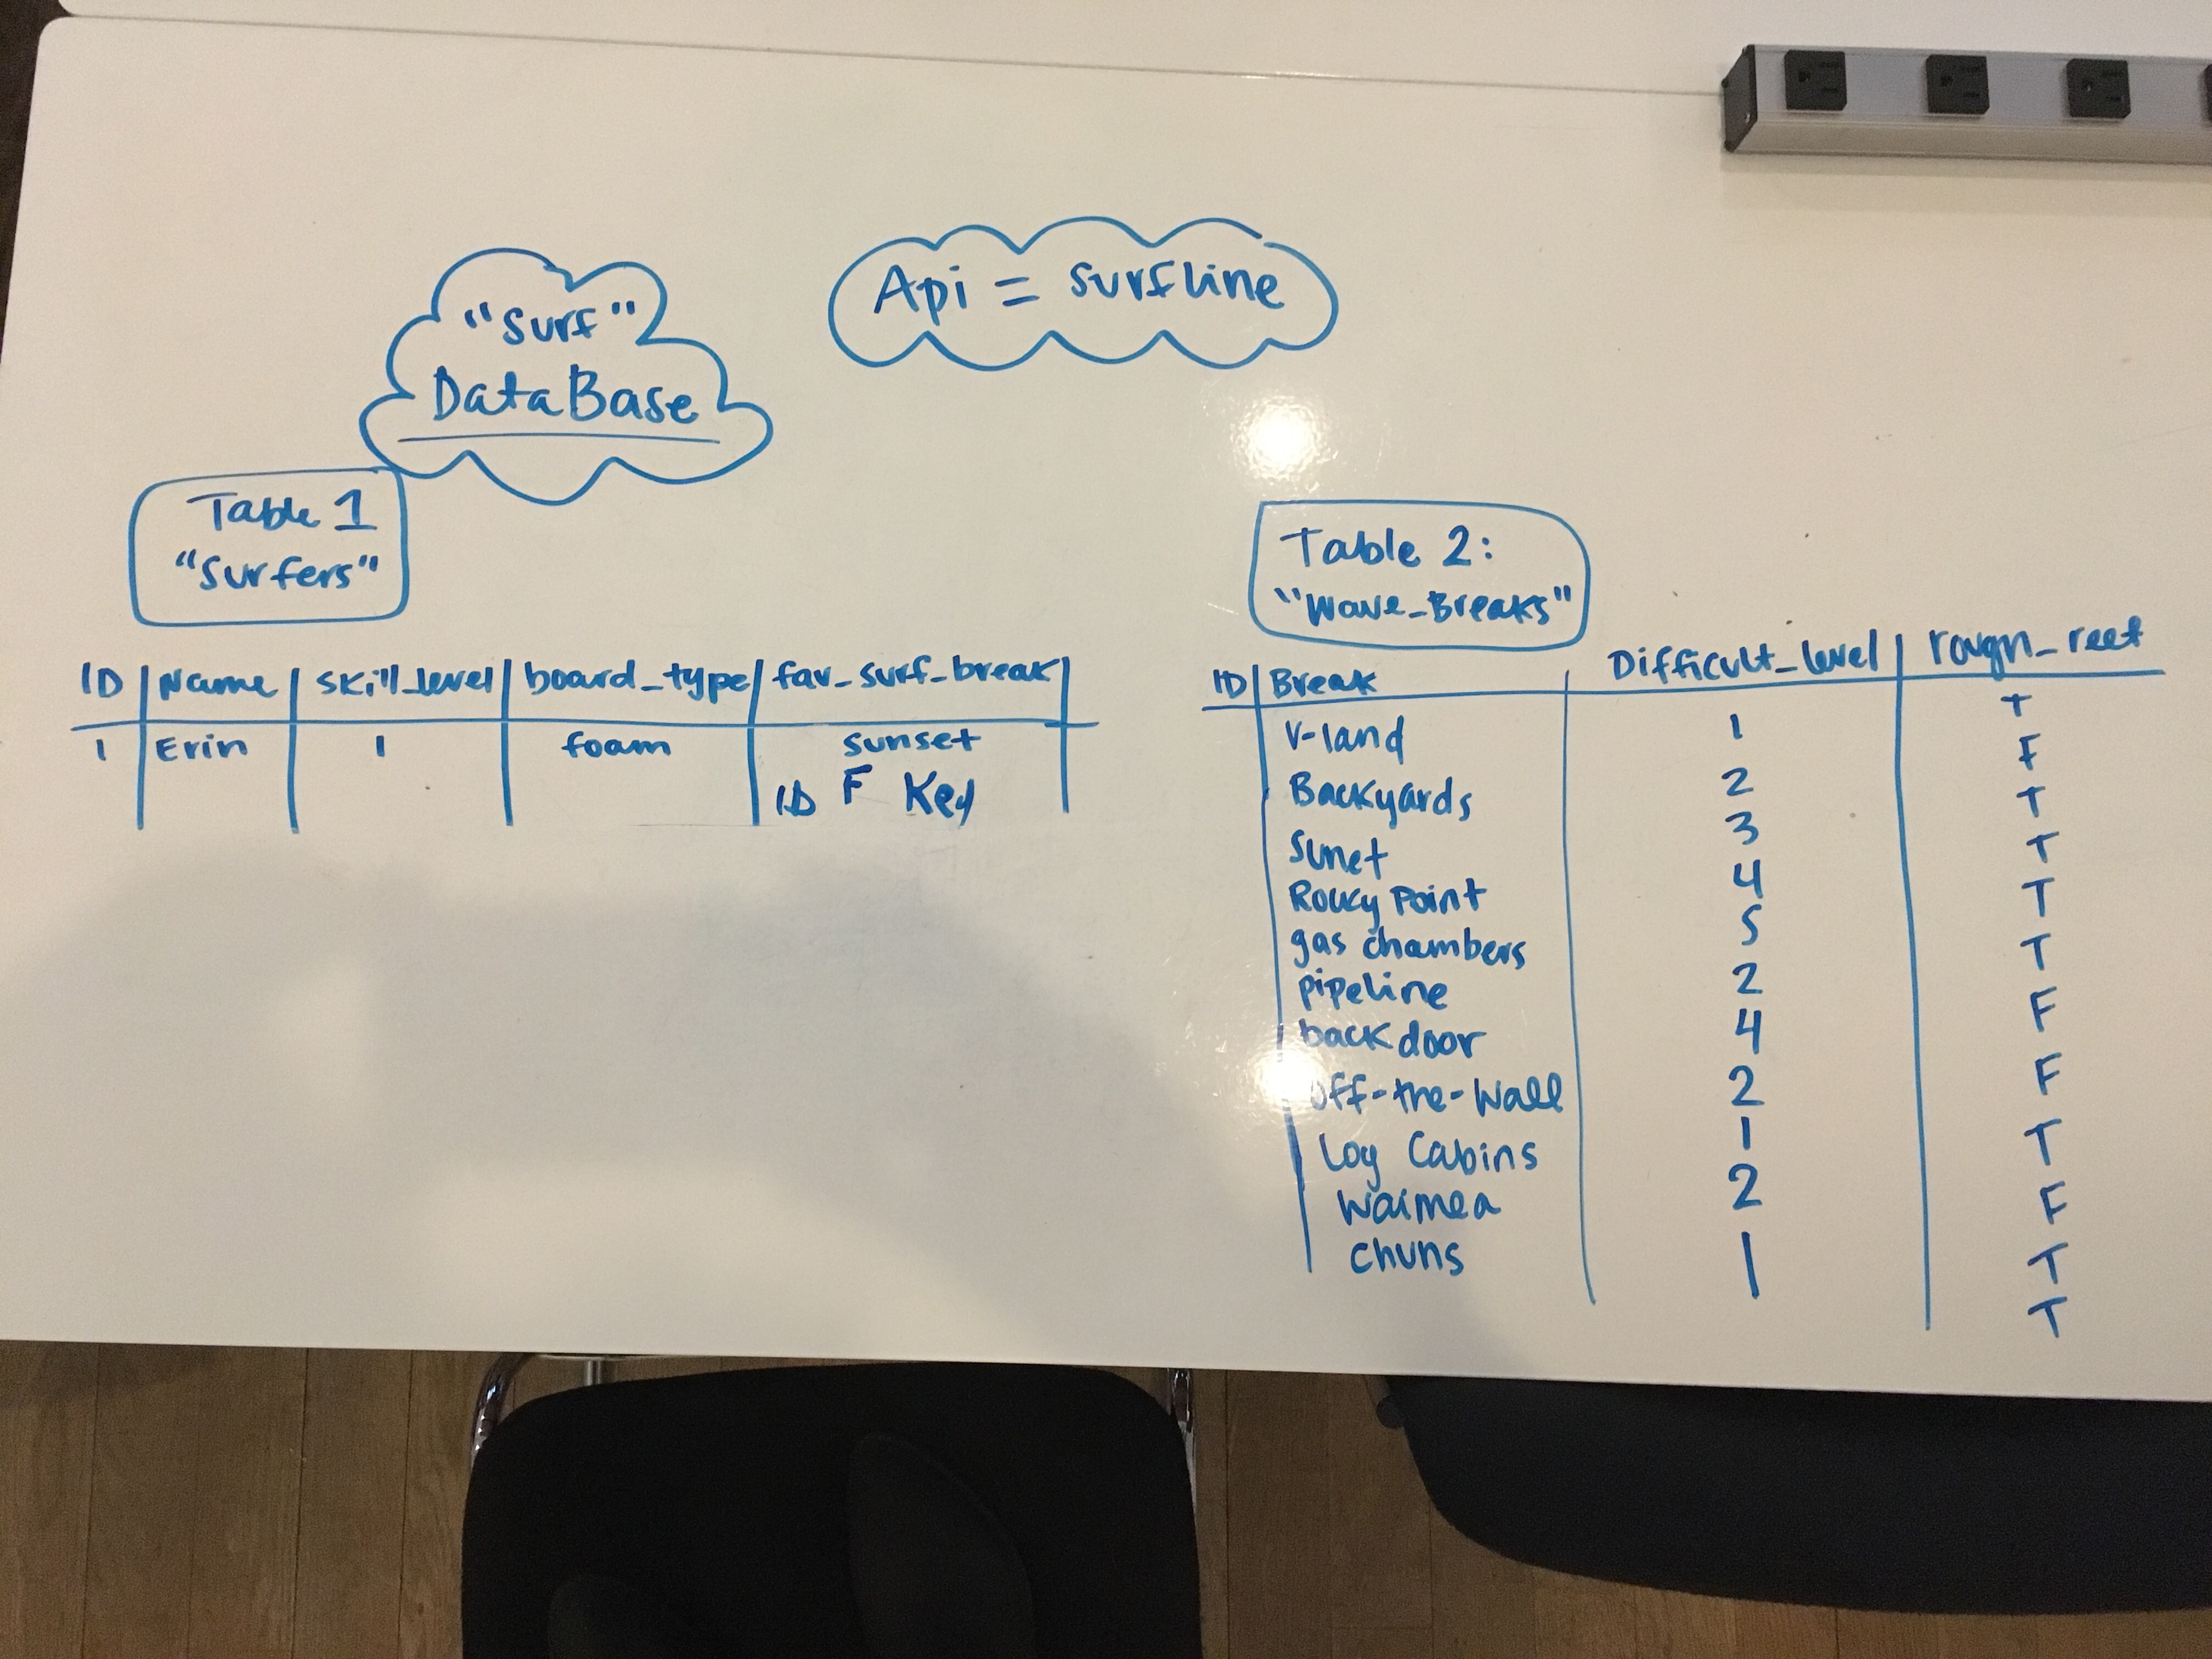 "Surf"
DataBase
Api = surfline
Table 1
"Surfers"
ID Name skill_level board_type fav_surf_break
1 Erin 1 foam sunset
ID F Key
Table 2:
"Wave_Breaks"
ID Break Difficult_level rough_reef
V-land 1 T
Backyards 2 F
Sunet 3 T
Rocky Point 4 T
gas chambers 5 T
pipeline 2 T
backdoor 4 F
off-the-Wall 2 F
Log Cabins 1 T
Waimea 2 F
Chuns 1 T
T